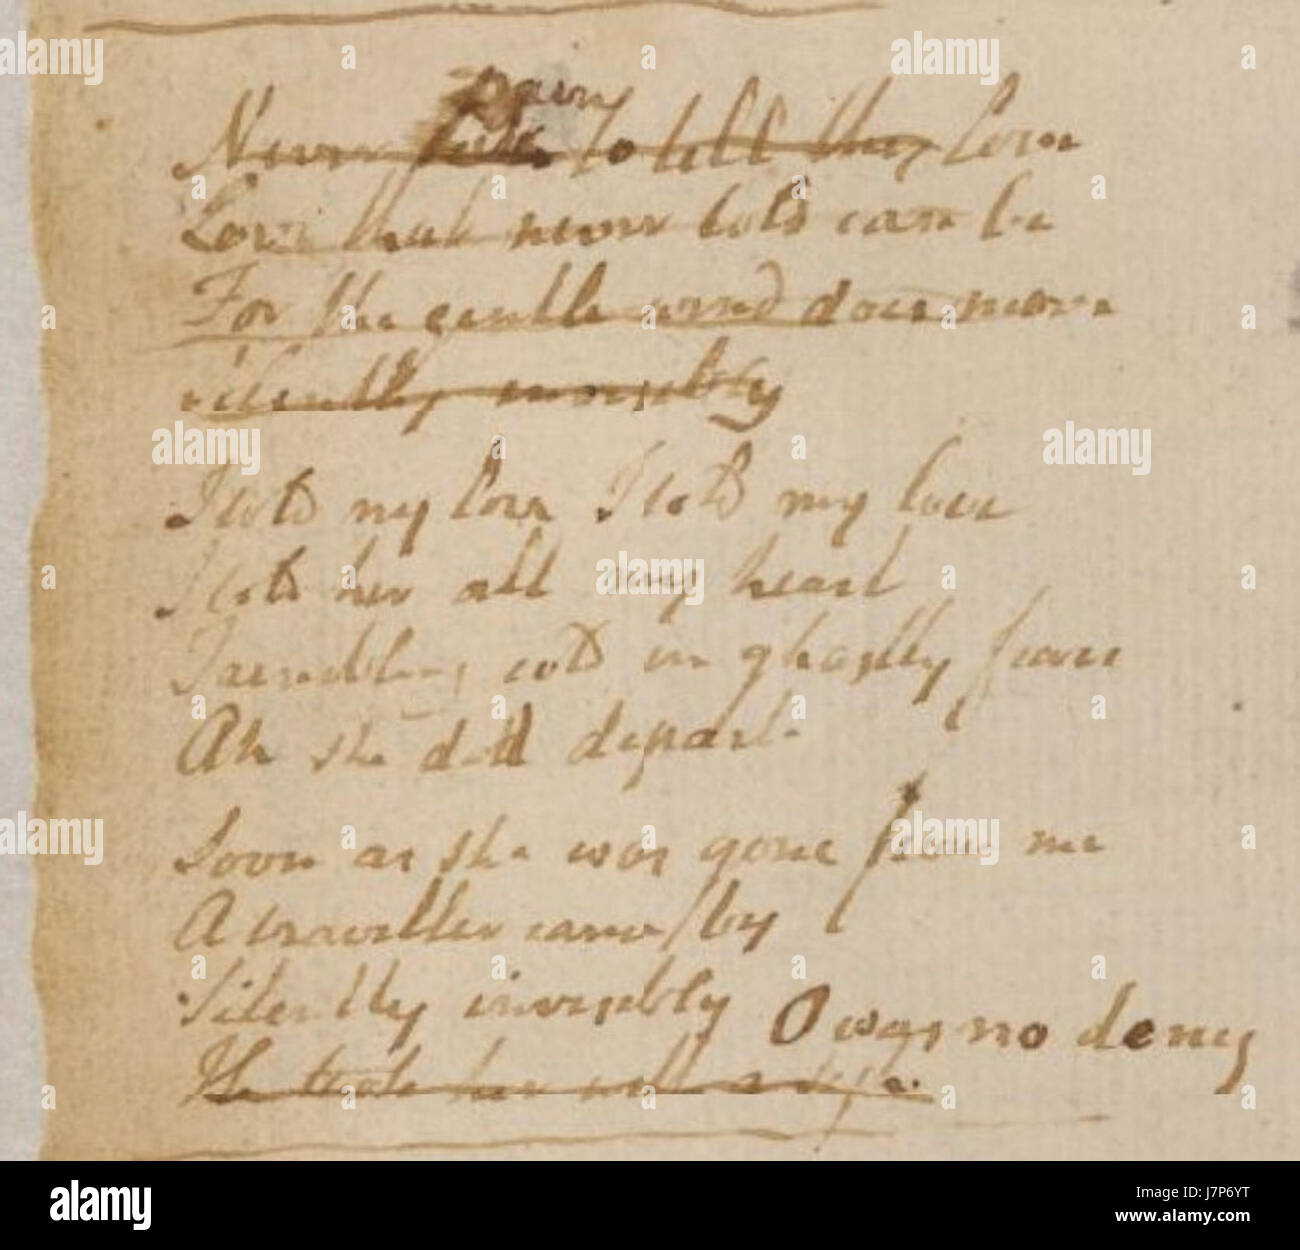 pain
Never seek to tell thy love
Love that never told can be
For the gentle wind does move
Silently invisibly
I told my love I told my love
I told her all my heart
Trembling cold in ghastly fears
Ah she doth depart
Soon as she was gone from me
A traveller came by
Silently invisibly
O was no deny
He took her with a sigh.
alamy
Image ID: J7P6YT
www.alamy.com